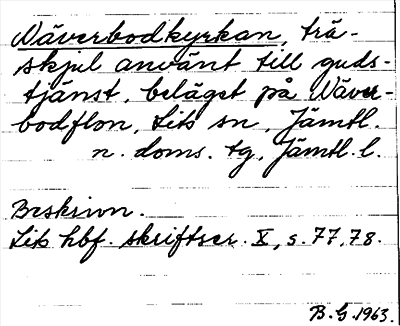 Näverbodkyrkan, trä-
skjul använt till guds-
tjänst, beläget på Näver-
bodflon, Lits sn, Jämtl.
n. doms. tg, Jämtl. l.
Beskrivn.
Lits hbf. skriftser. X, s. 77, 78.
B. G. 1963.